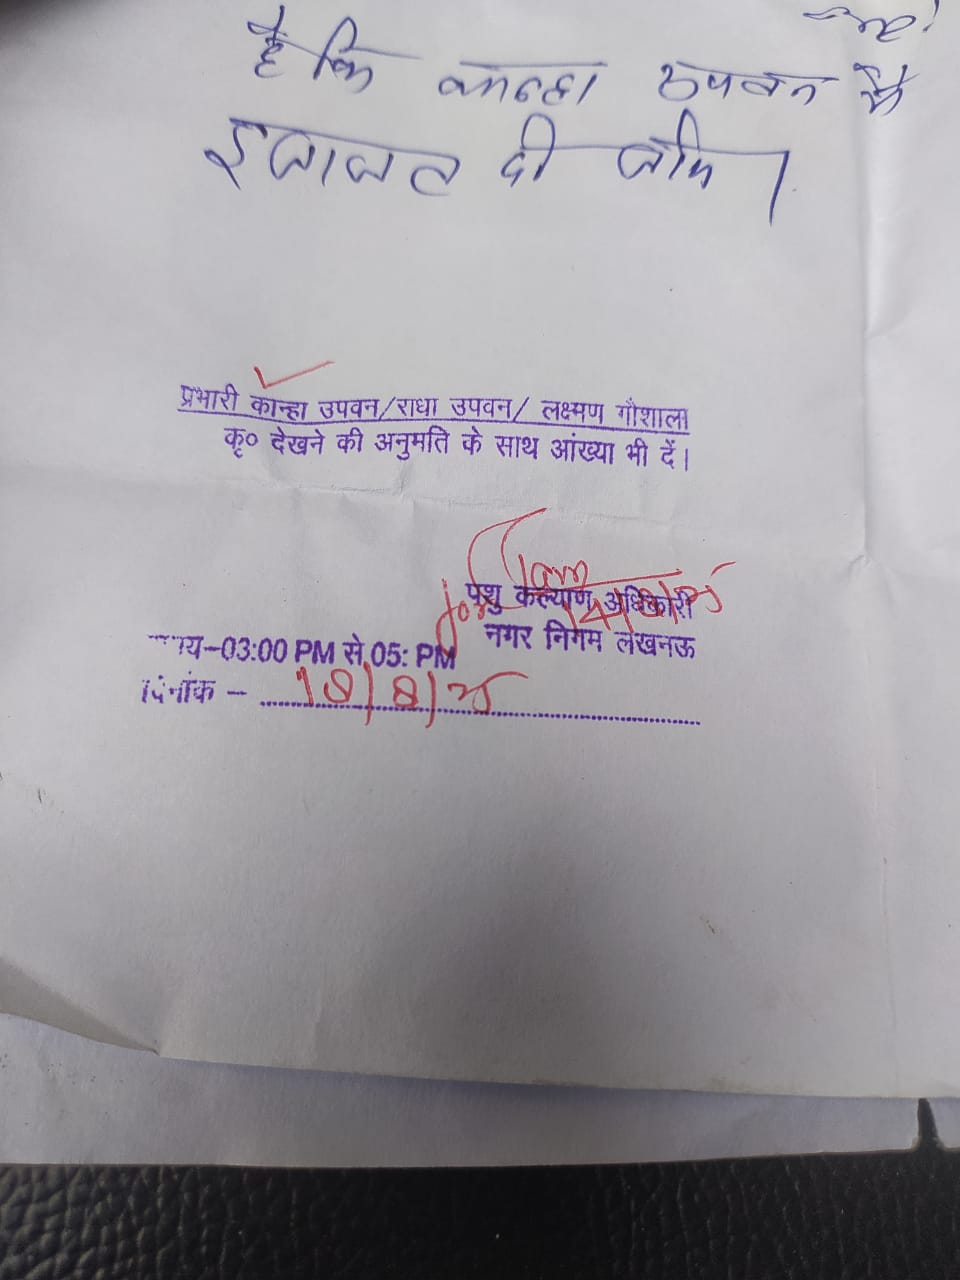 है कि कान्हा उपवन में
इजाजत दी जाए।
प्रभारी कान्हा उपवन/राधा उपवन/ लक्ष्मण गौशाला
कृ० देखने की अनुमति के साथ आंख्या भी दें।
पशु कल्याण अधिकारी
नगर निगम लखनऊ
य–03:00 PM से 05: PM
दिनांक –